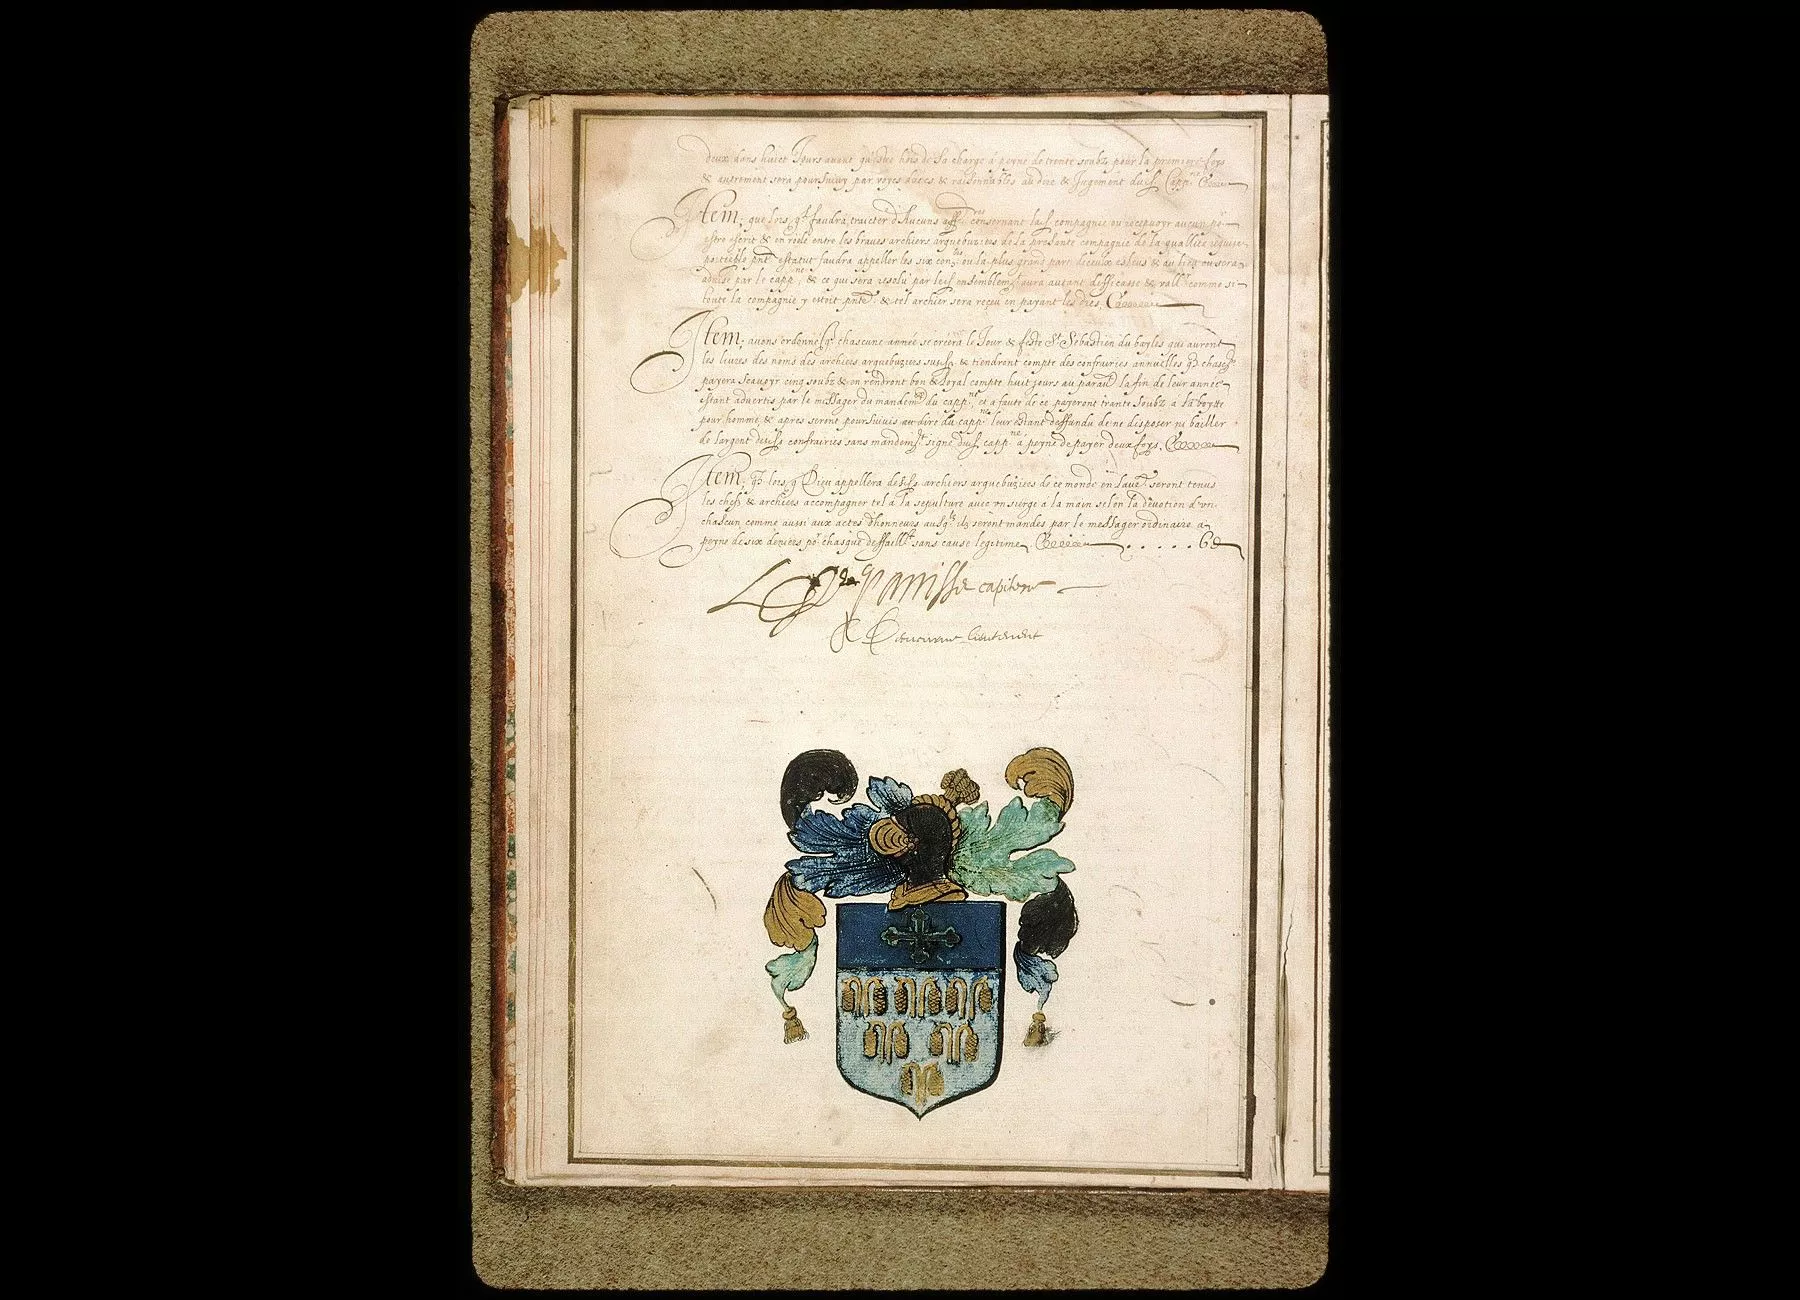 deux dans huict Jours avant qu'estre hors de sa charge à peyne de trente soubz pour la premiere foys
& autrement sera poursuivy par voyes deues & raisonnables au dire & Jugement dud. Capp.ne
Item, que lors q. faudra traicter d'Aucuns aff.res consernant lad. compagnie ou recepvoyr aucun po.
estre escrit & en roolé entre les braves archiers arquebuziers de la presante compagnie de la quallité requise
por le pnt estatut faudra appeller les six ou la plus grand part diceux esleus & au lieu ou sera
advisé par le capp.ne, & ce qui sera resolu par ensemblem.t aura autant defficasse & vall.r comme si
toute la compagnie y estoit pnte, & tel archier sera reçeu en payant les dres.
Item, avons ordonné q. chascune année se créera le Jour & feste St Sebastien du bayles qui auront
les livres des noms des archiers arquebuziers susd. & tiendront compte des confrairies annuelles q. chascū
payera scavoyr cinq soubz & en rendront bon & loyal compte huit jours au paravā la fin de leur année
estant advertis par le messager du mandem.t du capp.ne et a faute de ce payeront trante soubz a la boytte
pour homme, & apres seront poursuivis au dire du capp.ne leur estant deffandu de ne disposer ni bailler
de largent desd. confrairies sans mandem.t signé dud. capp.ne à peyne de payer deux foys.
Item, q. lors q. Dieu appellera desd. archiers arquebuziers de ce monde en lau.e seront tenus
les chefs & archiers accompagner tel a la sepulture avec un sierge à la main selon la devotion d'un
chascun comme aussi aux actes d'honneurs ausq.ls ilz seront mandés par le messager ordinaire à
peyne de six deniers po.r chasque deffaill.t sans cause legitime ..... 6 d
capitene
lieutenent